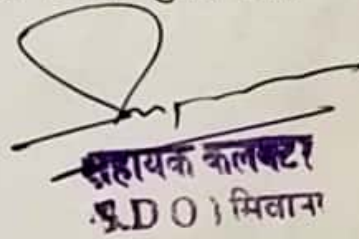 सहायक कलक्टर
S.D O ) सिवाना